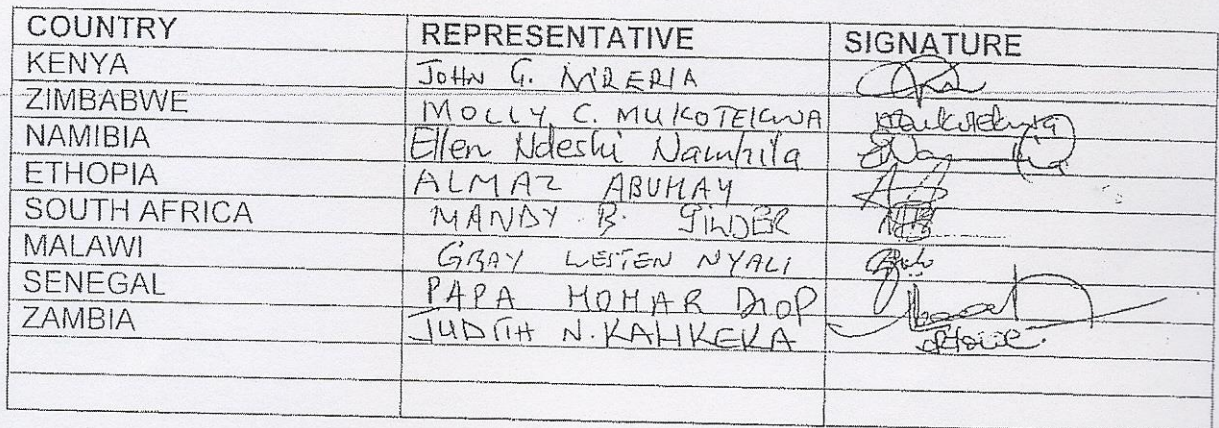 COUNTRY REPRESENTATIVE SIGNATURE
KENYA JOHN G. M'RERIA
ZIMBABWE MOLLY C. MUKOTEKWA
NAMIBIA Ellen Ndeshi Namhila
ETHOPIA ALMAZ ABUHAY
SOUTH AFRICA MANDY B. GILDER
MALAWI GRAY WESTEN NYALI
SENEGAL PAPA MOMAR DIOP
ZAMBIA JUDITH N.